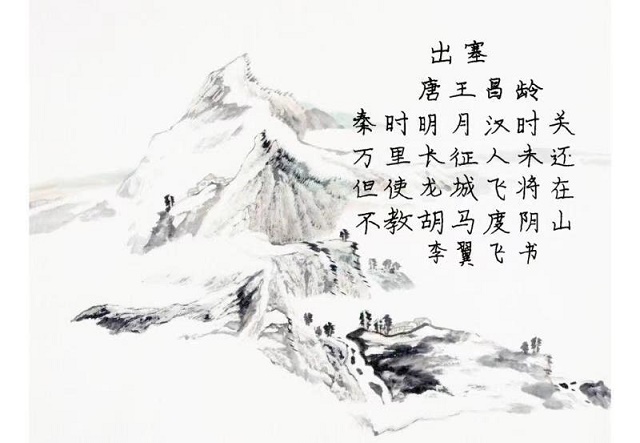 出塞
唐王昌龄
秦时明月汉时关
万里长征人未还
但使龙城飞将在
不教胡马度阴山
李翼飞书